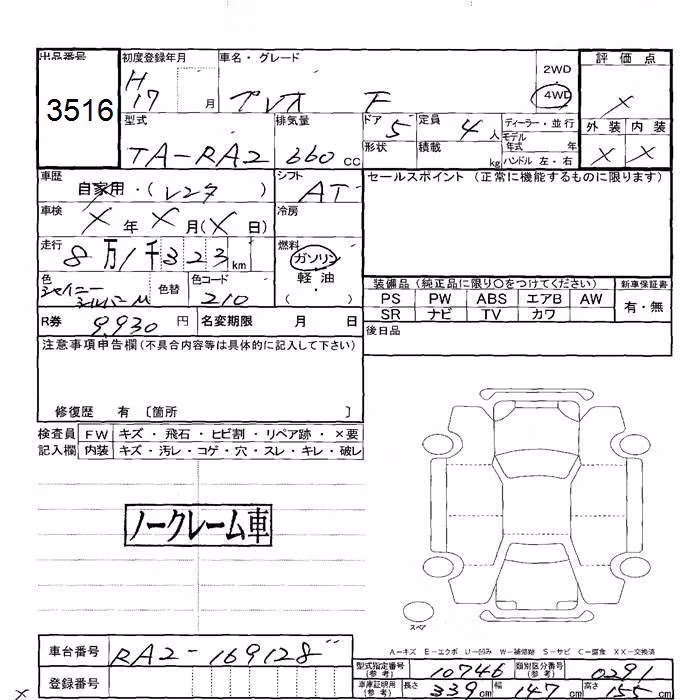 出品番号 初度登録年月 車名・グレード 評価点
3516 H 17 月 プレオ F 2WD 4WD X
型式 排気量 ドア 5 定員 4 人 ディーラー・並行 外装 内装
TA-RA2 660 cc 形状 積載 kg モデル年式 年 X X
ハンドル 左・右
車歴 自家用・(レンタ) シフト AT セールスポイント (正常に機能するものに限ります)
車検 X 年 X 月(X 日) 冷房
走行 8万1千323 km 燃料 ガソリン
軽油
( ・ )
色 シャイニーシルバーM 色替 色コード 210
装備品 (純正品に限り〇をつけてください) 新車保証書
PS PW ABS エアB AW 有・無
SR ナビ TV カワ
R券 9,930 円 名変期限 月 日
後日品
注意事項申告欄 (不具合内容等は具体的に記入して下さい)
修復歴 有 〔箇所 〕
検査員 FW キズ・飛石・ヒビ割・リペア跡・×要
記入欄 内装 キズ・汚レ・コゲ・穴・スレ・キレ・破レ
ノークレーム車
スペア
A-キズ E-エクボ U-凹み W-補修跡 S-サビ C-腐食 XX-交換済
車台番号 RA2-169128
型式指定番号 (参考) 10746 類別区分番号 (参考) 0291
登録番号
車庫証明用 (参考) 長さ 339 cm 幅 147 cm 高さ 155 cm
X